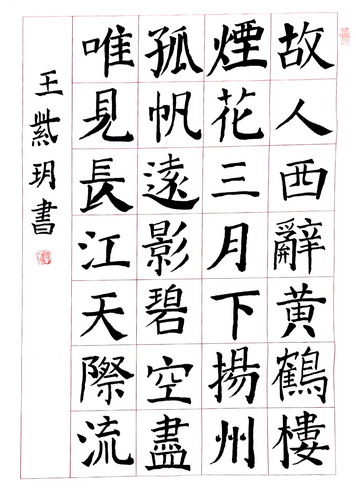 故人西辭黄鶴樓
煙花三月下揚州
孤帆遠影碧空盡
唯見長江天際流
王紫玥書